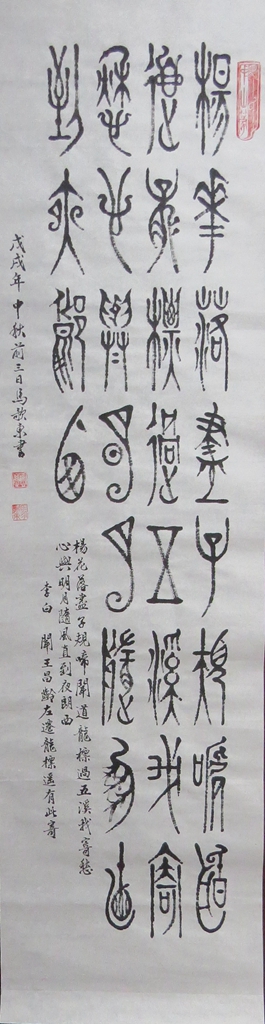 楊華落盡子規嗁聞
道龍標過五溪我寄
愁心與明月隨風直
到夜郎西
楊花落盡子規啼聞道龍標過五溪我寄愁
心與明月隨風直到夜朗西
李白 聞王昌齡左遷龍標遙有此寄
戊戌年中秋前三日馬東書